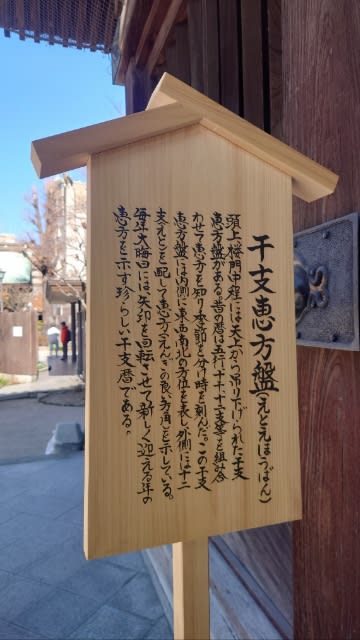 干支恵方盤(えとえほうばん)
頭上楼門中程には天上から吊り下げられた干支
恵方盤がある昔の暦は五行、十干、十二支等を組み合
わせて恵方を知り季節を分け時を刻んだ。この干支
恵方盤には内側に東西南北の方位を表し外側には十二
支(えと)を配して恵方(えんぎの良い方角)を示している。
毎年大晦日には矢印を回転させて新しく迎える年の
恵方を示す珍らしい干支暦である。